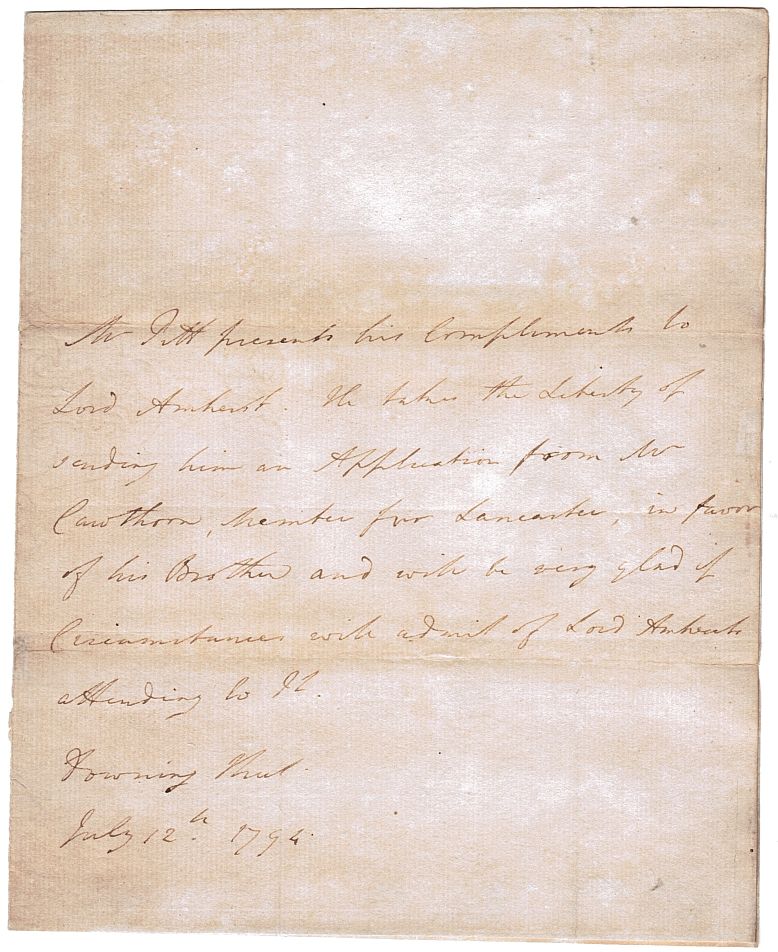 Mr Pitt presents his Compliments to
Lord Amherst. He takes the Liberty of
sending him an Application from Mr
Cawthorn, Member for Lancaster, in favor
of his Brother and will be very glad if
Circumstances will admit of Lord Amherst's
attending to It.
Downing Street.
July 12th. 1794.